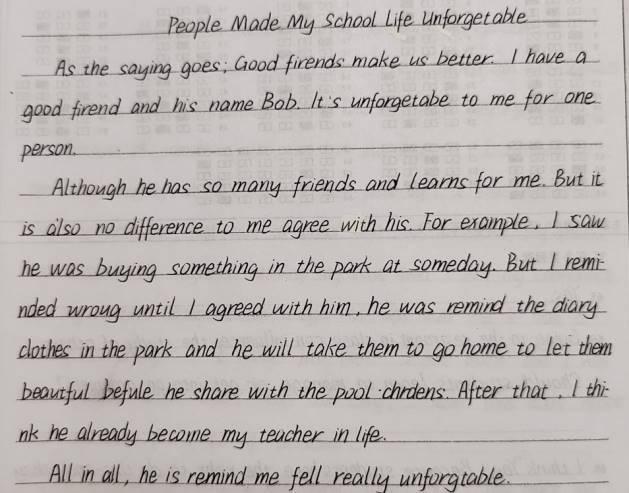 People Made My School Life Unforgetable
As the saying goes; Good firends make us better. I have a
good firend and his name Bob. It's unforgetabe to me for one
person.
Although he has so many friends and learns for me. But it
is also no difference to me agree with his. For example, I saw
he was buying something in the park at someday. But I remi-
nded wroug until I agreed with him, he was remind the diary
clothes in the park and he will take them to go home to let them
beautful befule he share with the pool chrdens. After that, I thi-
nk he already become my teacher in life.
All in all, he is remind me fell really unforgtable.